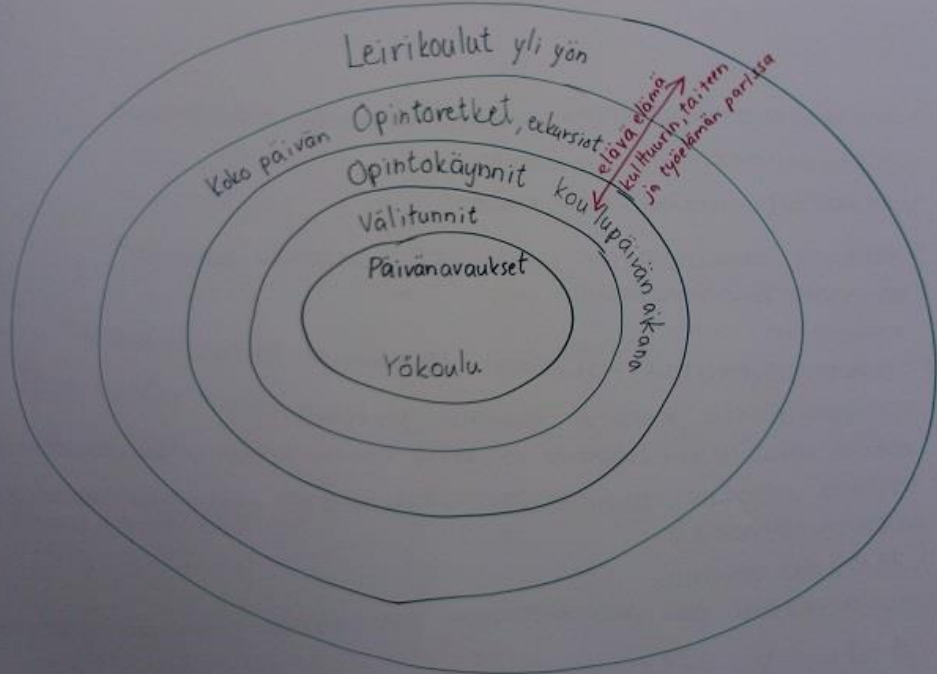 Leirikoulut yli yön
Koko päivän Opintoretket, exkursiot
Opintokäynnit koulupäivän aikana
Välitunnit
Päivänavaukset
Yökoulu
elävä elämä
kulttuurin, taiteen
ja työelämän parissa